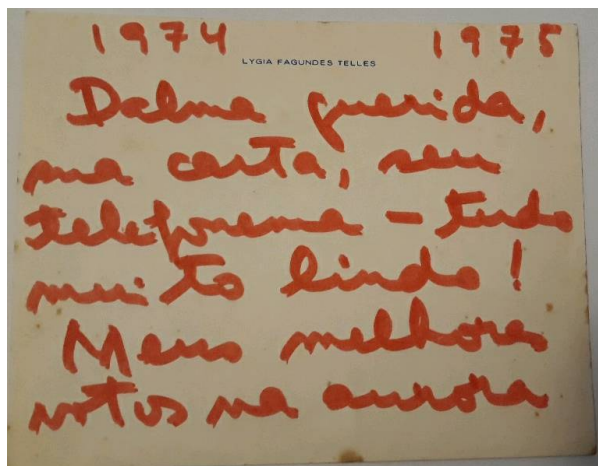 1974 1975
LYGIA FAGUNDES TELLES
Dalma querida,
sua carta, seu
telefonema - tudo
muito lindo!
Meus melhores
votos na aurora